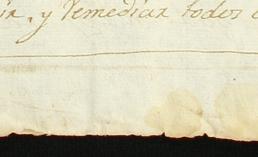 y remediar todos